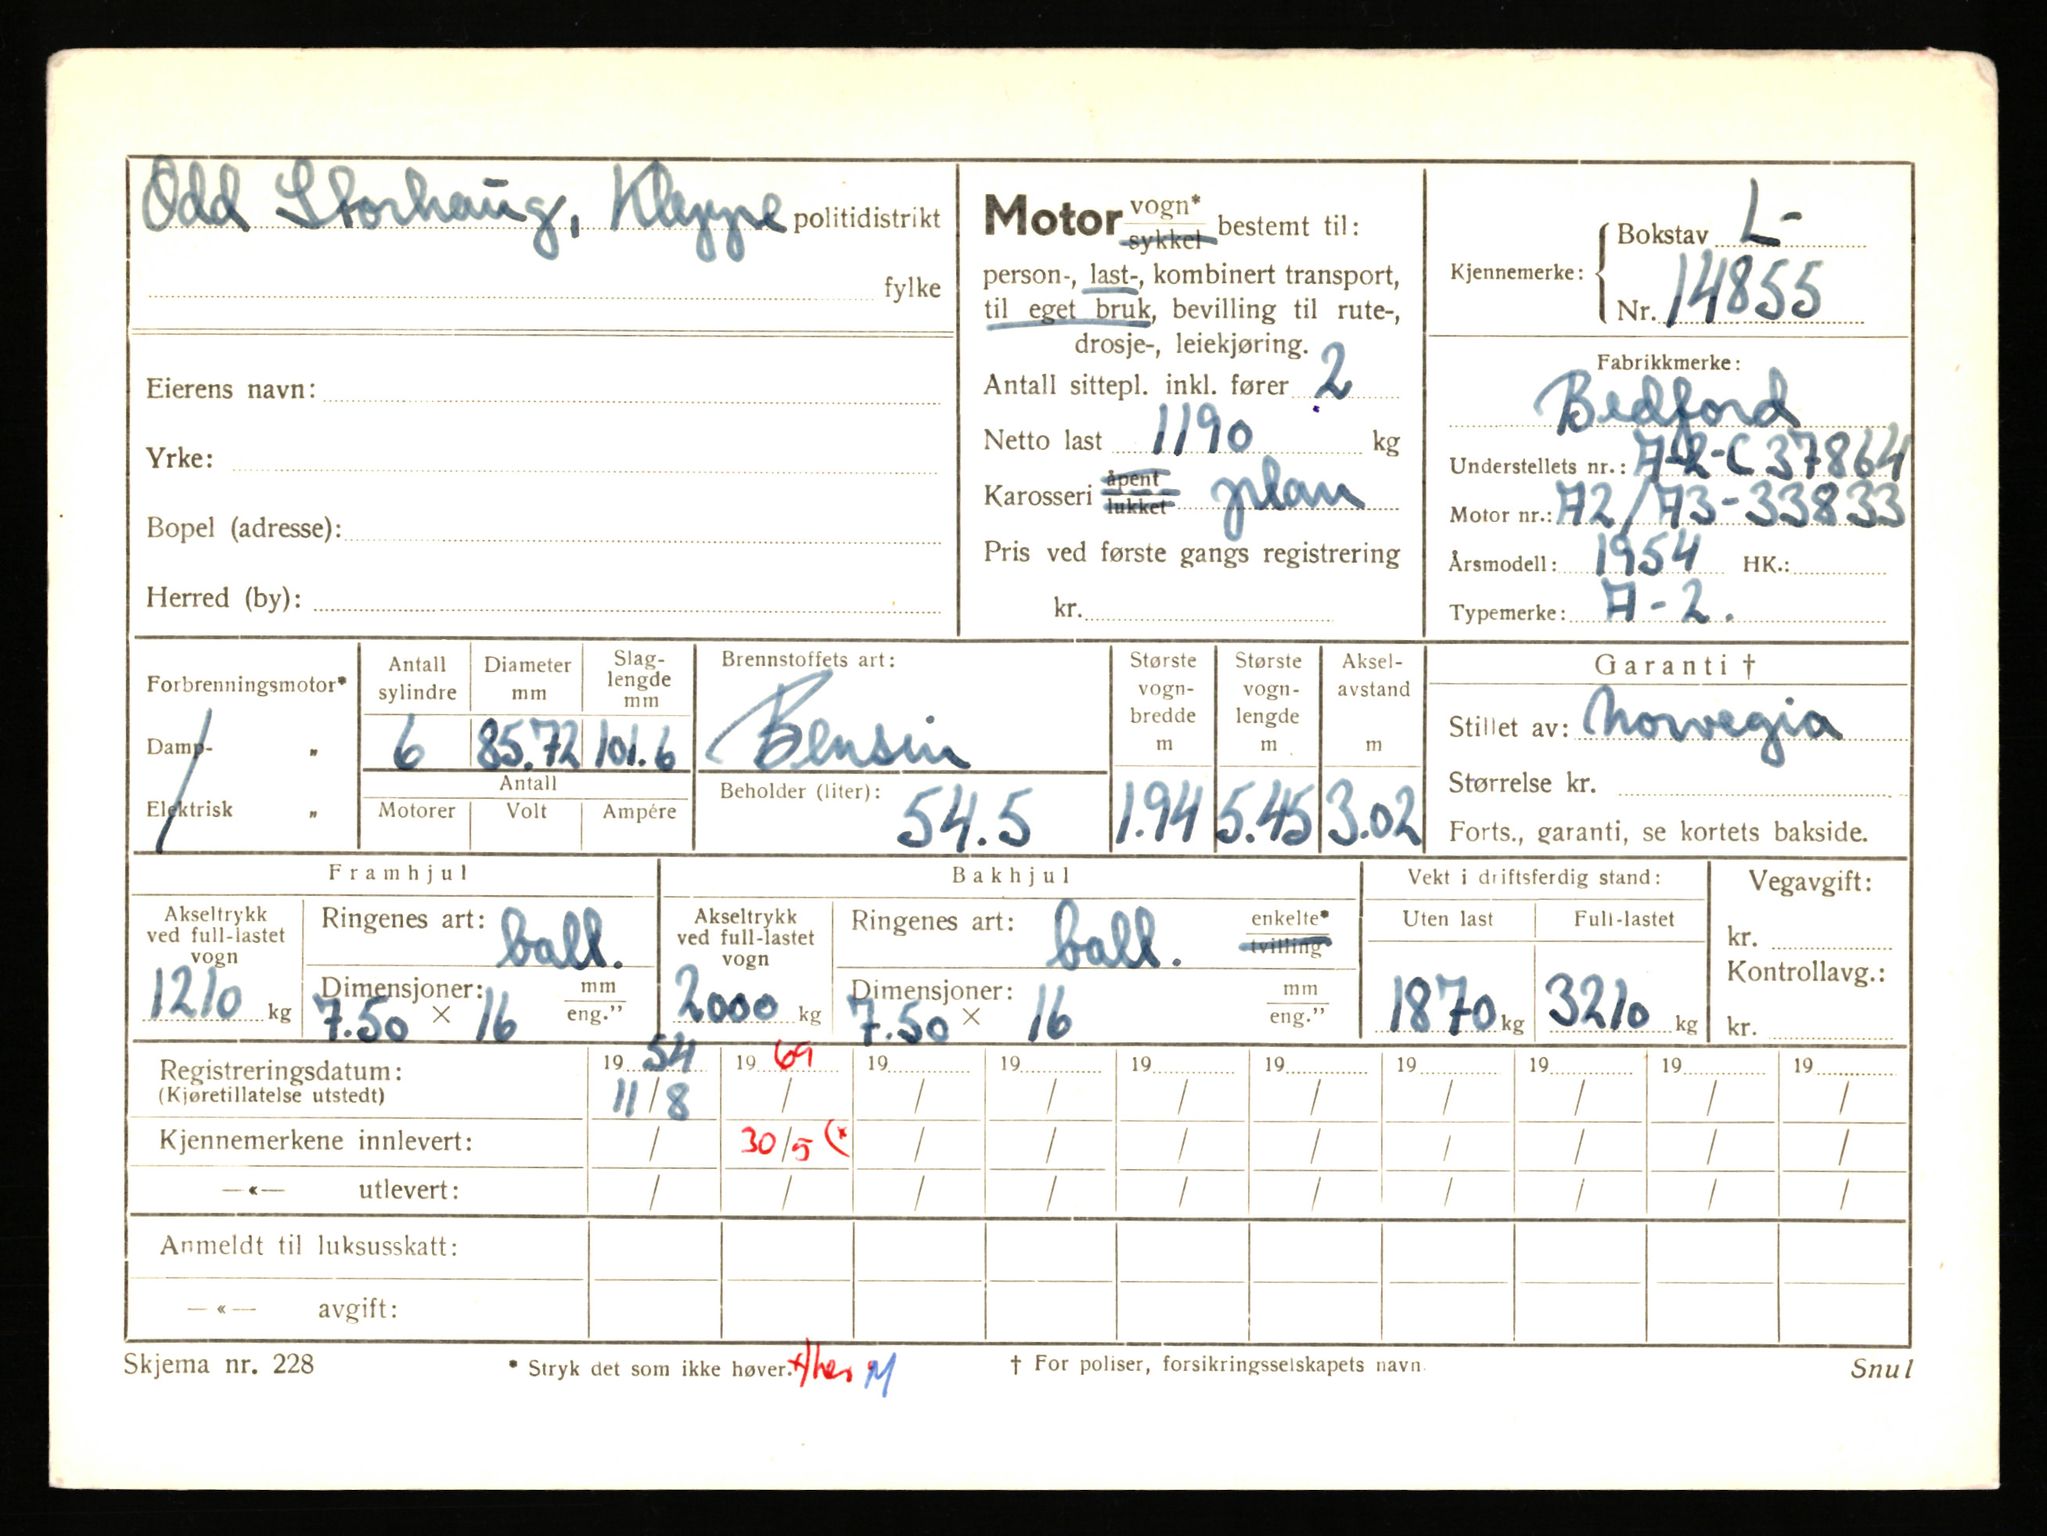 Odd Storhaug, Kleppe politidistrikt
fylke
Eierens navn:
Yrke:
Bopel (adresse):
Herred (by):
Motor vogn* sykkel bestemt til:
person-, last-, kombinert transport,
til eget bruk, bevilling til rute-,
drosje-, leiekjøring.
Antall sittepl. inkl. fører 2
Netto last 1190 kg
Karosseri åpent lukket plan
Pris ved første gangs registrering
kr.
Kjennemerke: Bokstav L-
Nr. 14855
Fabrikkmerke:
Bedford
Understellets nr.: A-2-C 37864
Motor nr.: A2/A3-33833
Årsmodell: 1954 HK.:
Typemerke: A-2.
Forbrenningsmotor*
Damp- „
Elektrisk „
Antall sylindre 6
Diameter mm 85.72
Slag-lengde mm 101.6
Antall
Motorer Volt Ampére
Brennstoffets art:
Bensin
Beholder (liter): 54.5
Største vogn-bredde m 1.94
Største vogn-lengde m 5.45
Aksel-avstand m 3.02
Garanti †
Stillet av: Norwegia
Størrelse kr.
Forts., garanti, se kortets bakside.
Framhjul
Akseltrykk ved full-lastet vogn 1210 kg
Ringenes art: ball.
Dimensjoner: 7.50 × 16 mm eng.”
Bakhjul
Akseltrykk ved full-lastet vogn 2000 kg
Ringenes art: ball. enkelte* tvilling
Dimensjoner: 7.50 × 16 mm eng.”
Vekt i driftsferdig stand:
Uten last Full-lastet
1870 kg 3210 kg
Vegavgift:
kr.
Kontrollavg.:
kr.
Registreringsdatum: 19 54 19 69 19 19 19 19 19 19 19 19
(Kjøretillatelse utstedt) 11/8 / / / / / / / / /
Kjennemerkene innlevert: / 30/5 (* / / / / / / / /
—«— utlevert: / / / / / / / / / /
Anmeldt til luksusskatt:
—«— avgift:
Skjema nr. 228 * Stryk det som ikke høver. † For poliser, forsikringsselskapets navn Snul